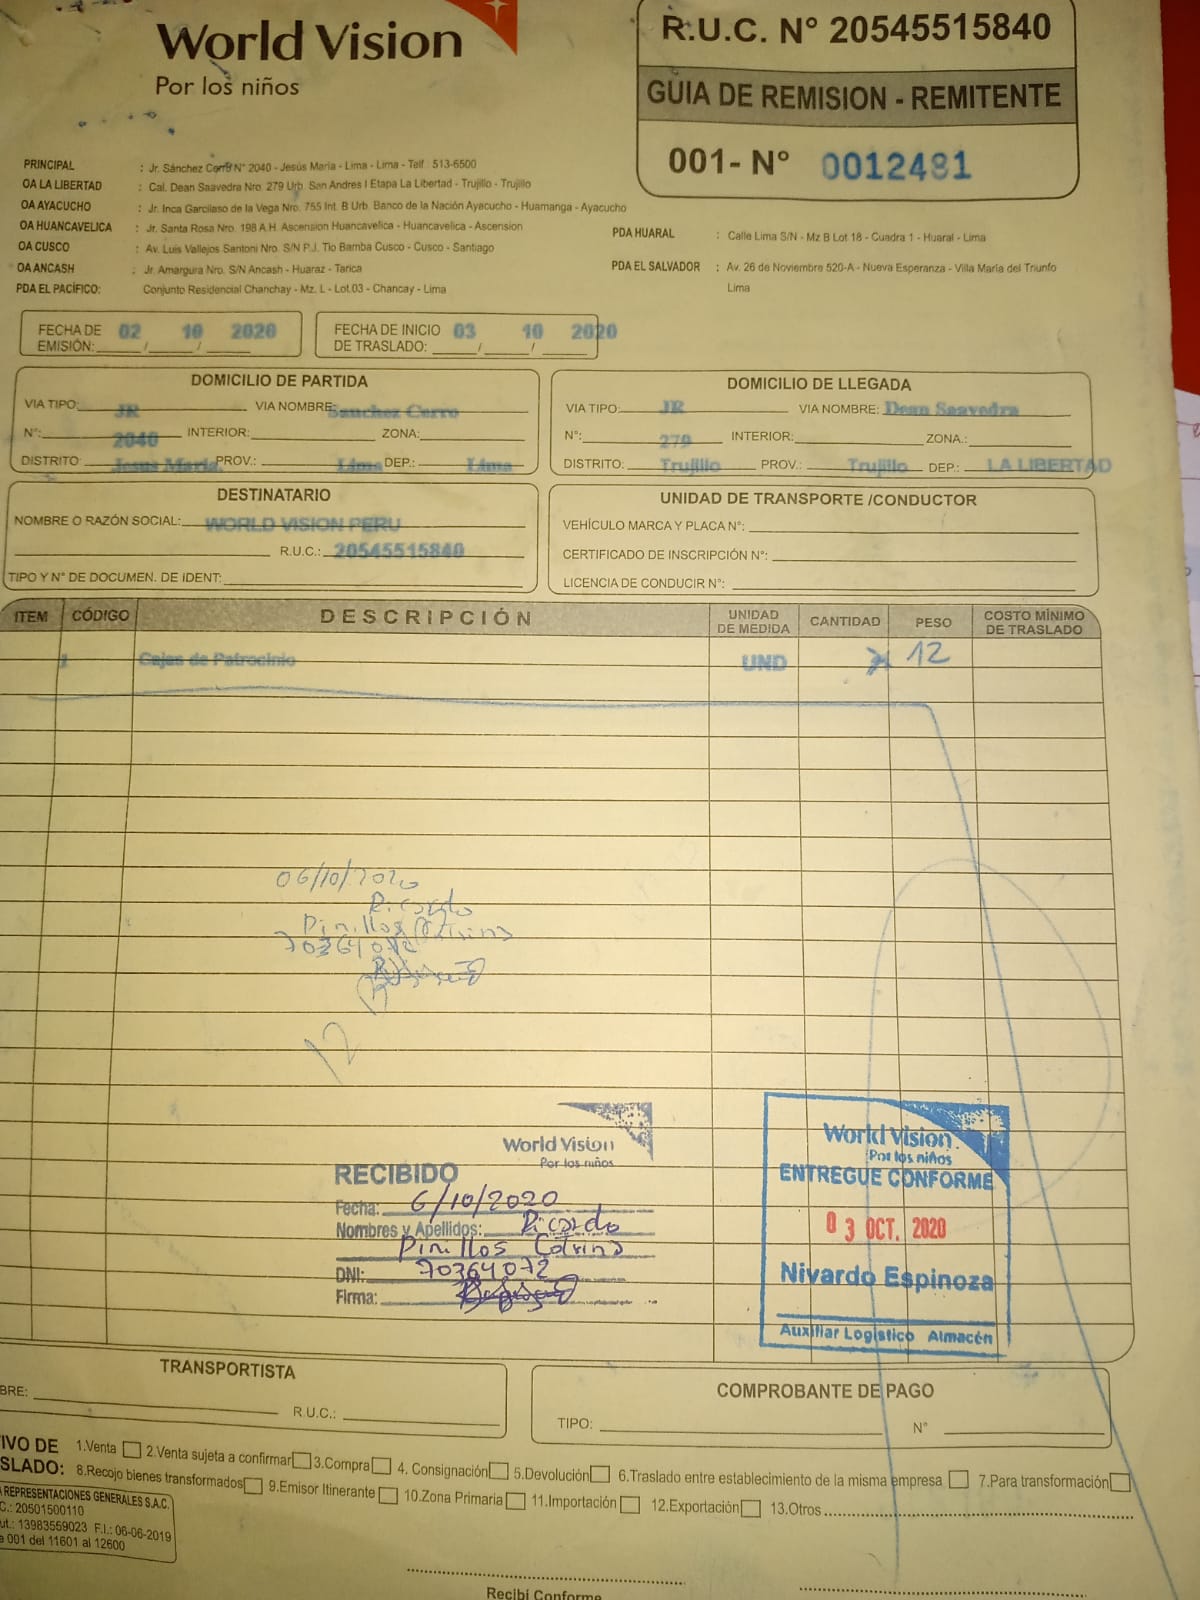 World Vision
Por los niños
R.U.C. N° 20545515840
GUIA DE REMISION - REMITENTE
001- N° 0012481
PRINCIPAL : Jr. Sánchez Cerro N° 2040 - Jesús María - Lima - Lima - Telf : 513-6500
OA LA LIBERTAD : Cal. Dean Saavedra Nro. 279 Urb. San Andres I Etapa La Libertad - Trujillo - Trujillo
OA AYACUCHO : Jr. Inca Garcilaso de la Vega Nro. 755 Int. B Urb. Banco de la Nación Ayacucho - Huamanga - Ayacucho
OA HUANCAVELICA : Jr. Santa Rosa Nro. 198 A.H. Ascension Huancavelica - Huancavelica - Ascension
OA CUSCO : Av. Luis Vallejos Santoni Nro. S/N P.J. Tio Bamba Cusco - Cusco - Santiago
OA ANCASH : Jr. Amargura Nro. S/N Ancash - Huaraz - Tarica
PDA EL PACÍFICO: Conjunto Residencial Chanchay - Mz. L - Lot.03 - Chancay - Lima
PDA HUARAL : Calle Lima S/N - Mz B Lot 18 - Cuadra 1 - Huaral - Lima
PDA EL SALVADOR : Av. 26 de Noviembre 520-A - Nueva Esperanza - Villa María del Triunfo
Lima
FECHA DE EMISIÓN: 02 / 10 / 2020
FECHA DE INICIO DE TRASLADO: 03 / 10 / 2020
DOMICILIO DE PARTIDA
VIA TIPO: JR VIA NOMBRE: Sanchez Cerro
N°: 2040 INTERIOR: ZONA:
DISTRITO: Jesus Maria. PROV.: Lima DEP.: Lima
DOMICILIO DE LLEGADA
VIA TIPO: JR VIA NOMBRE: Dean Saavedra
N°: 279 INTERIOR: ZONA.:
DISTRITO: Trujillo PROV.: Trujillo DEP.: LA LIBERTAD
DESTINATARIO
NOMBRE O RAZÓN SOCIAL: WORLD VISION PERU
R.U.C.: 20545515840
TIPO Y N° DE DOCUMEN. DE IDENT:
UNIDAD DE TRANSPORTE /CONDUCTOR
VEHÍCULO MARCA Y PLACA N°:
CERTIFICADO DE INSCRIPCIÓN N°:
LICENCIA DE CONDUCIR N°:
ITEM CÓDIGO DESCRIPCIÓN UNIDAD DE MEDIDA CANTIDAD PESO COSTO MÍNIMO DE TRASLADO
1 Cajas de Patrocinio UND 12
06/10/2020
Ricardo
Pinillos Cotrina
70364072
12
World Vision
Por los niños
RECIBIDO
Fecha: 6/10/2020
Nombres y Apellidos: Ricardo
Pinillos Cotrina
DNI: 70364072
Firma:
World Vision
Por los niños
ENTREGUE CONFORME
03 OCT. 2020
Nivardo Espinoza
Auxiliar Logistico Almacén
TRANSPORTISTA
BRE:
R.U.C.:
COMPROBANTE DE PAGO
TIPO: N°
IVO DE 1.Venta 2.Venta sujeta a confirmar 3.Compra 4. Consignación 5.Devolución 6.Traslado entre establecimiento de la misma empresa 7.Para transformación
SLADO: 8.Recojo bienes transformados 9.Emisor Itinerante 10.Zona Primaria 11.Importación 12.Exportación 13.Otros
REPRESENTACIONES GENERALES S.A.C.
C.: 20501500110
ut.: 13983559023 F.I.: 06-06-2019
001 del 11601 al 12600
Recibí Conforme